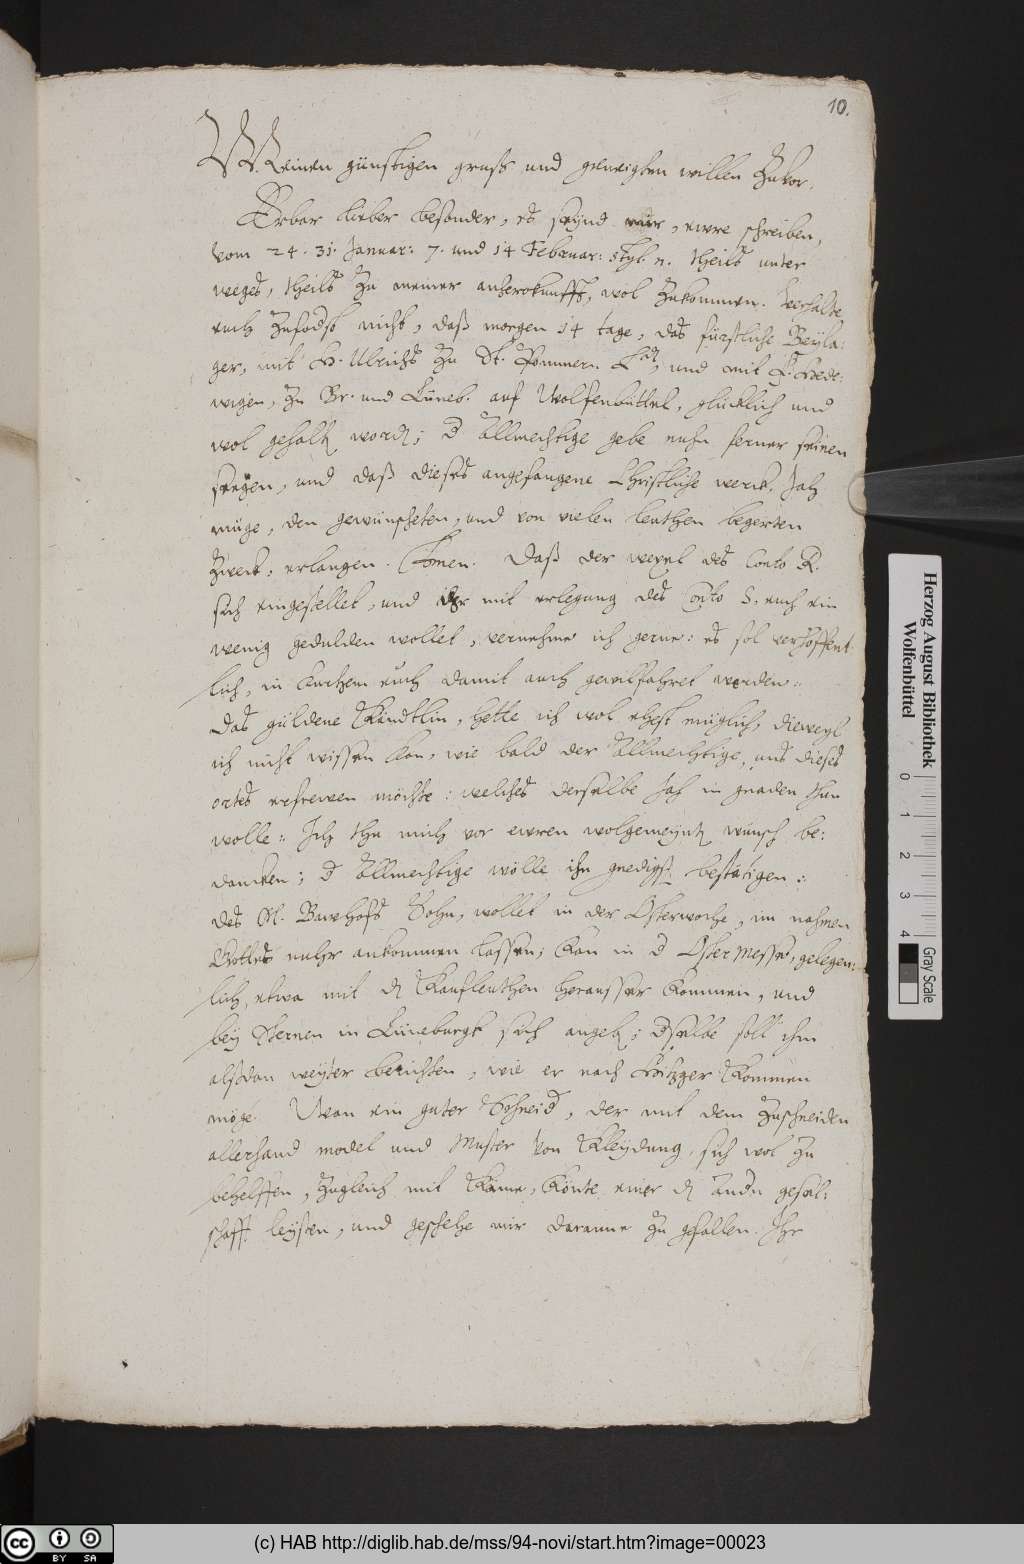 10.
Meinen günstigen grusß und geneigten willen zuvor,
Erbar lieber besonder, es seynd mir, ewre schreiben,
vom 24. 31. Januar: 7. und 14 Februar: styl. n. theils unter
weges, theils zu meiner anherokunfft, wol zukommen. Verhalte
euch zufodst nicht, daß morgen 14 tage, das fürstliche Beyla:
ger, mit H. Ulrichs zu St. Pommern. Ld, und mit F. Hede:
wigen, zu Br. und Lüneb. auf Wolfenbüttel, glücklich und
wol gehalten worden; d Allmechtige gebe nuhn ferner seinen
seegen, und daß dieses angefangene Christliche werck, Jah
müge, den gewünscheten, und von vielen leuthen begerten
zweck, erlangen. Amen. Daß der wexel des Conto R.
sich eingestellet, und ihr mit erlegung des Conto S, euch ein
wenig gedulden wollet, vernehme ich gerne: es sol verhoffent
lich, in kurtzem euch damit auch gewilfahret werden:
Das güldene Kändtlin, hette ich wol ehest müglich, dieweyl
ich nicht wissen kan, wie bald der Allmechtige, uns dieses
ortes erfrewen möchte: welches derselbe Jah in gnaden thun
wolle: Ich thu mich vor ewren wolgemeynten wunsch be:
dancken; d Allmechtige wölle ihn gnedigst bestätigen:
des M. Bawhofs Sohn, wollet in der Osterwoche, im nahmen
Gottes nuhr ankommen lassen; kan in d Oster Messe, gelegen:
lich, etwa mit den Kaufleuthen heraussser kommen, und
bey Sternen in Lüneburgk sich angeben; dselbe soll ihm
alsdan weyter berichten, wie er nach Hitzger kommen
möge. Wan ein guter Schneid, der mit dem zuschneiden
allerhand model und Muster von Kleydung, sich wol zu
behelffen, zugleich mit käme, könte einer den andn gesel:
schafft leysten, und geschehe mir daranne zu gefallen. Ihr
Herzog August Bibliothek
Wolfenbüttel
0 1 2 3 4
Gray Scale
(c) HAB http://diglib.hab.de/mss/94-novi/start.htm?image=00023
cc BY SA